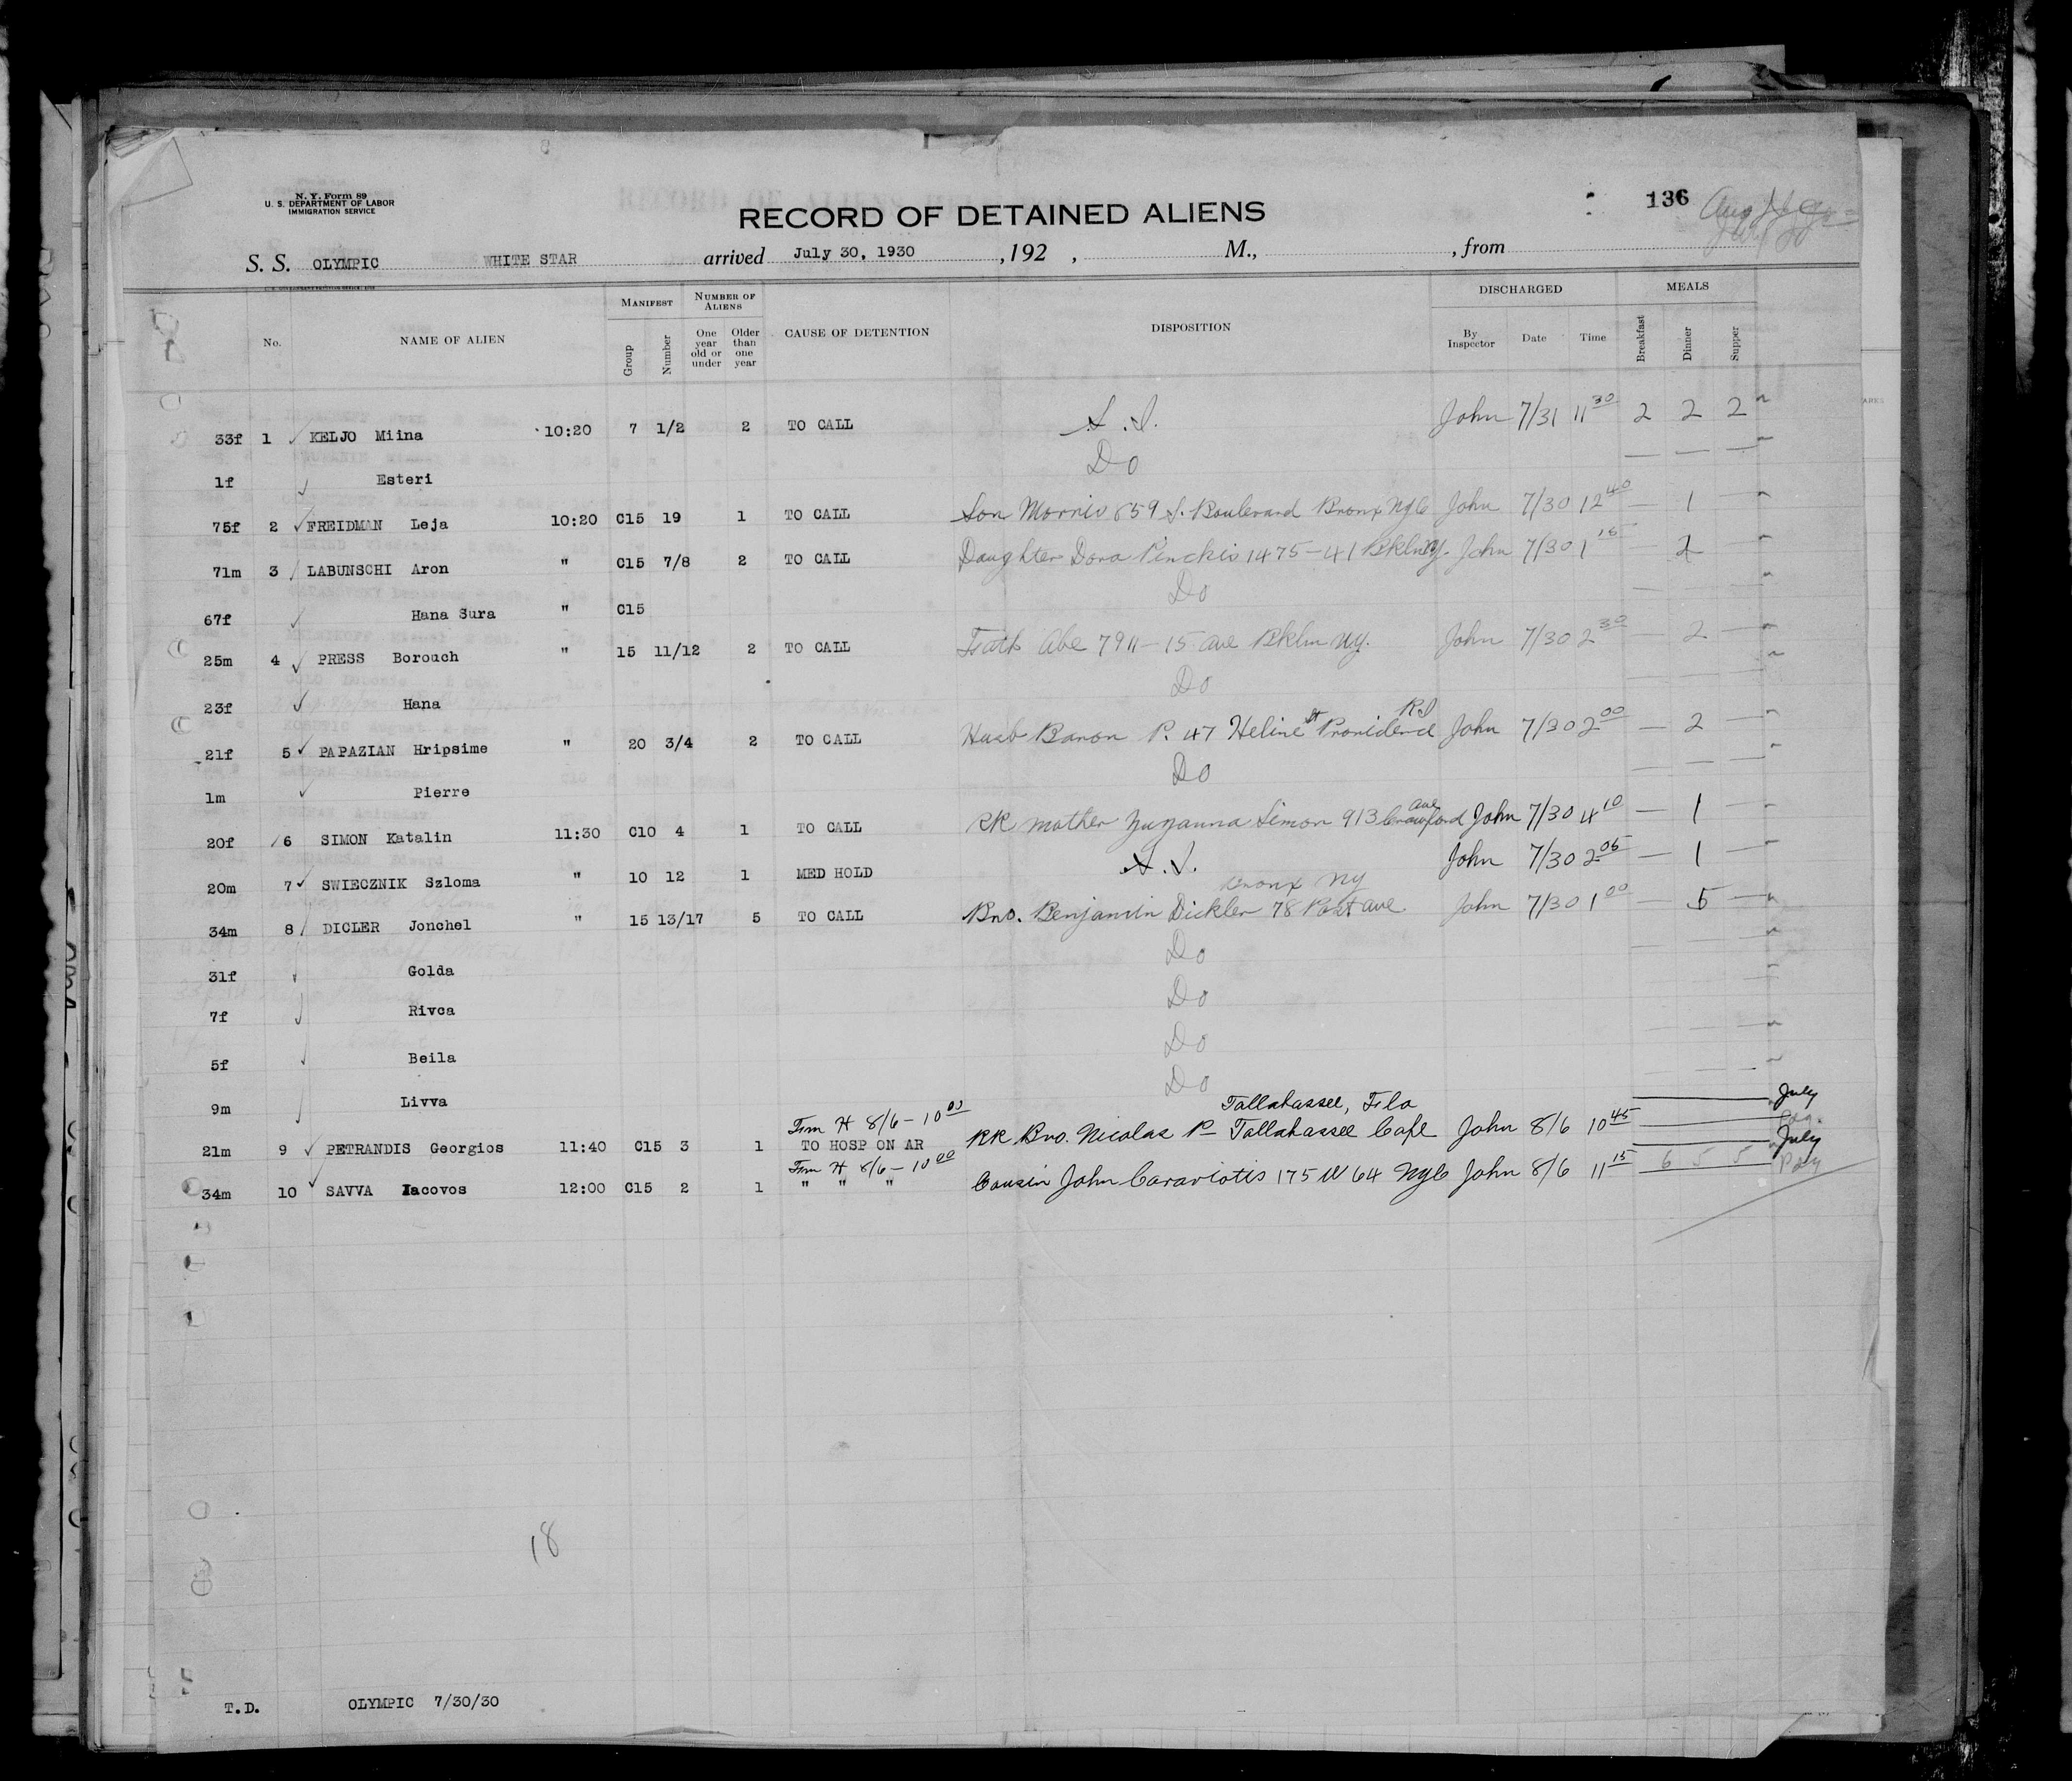 N. Y. Form 89
U. S. DEPARTMENT OF LABOR
IMMIGRATION SERVICE
136
RECORD OF DETAINED ALIENS
S. S. OLYMPIC WHITE STAR arrived July 30, 1930 , 192 , M., , from
No. NAME OF ALIEN MANIFEST Group Number NUMBER OF ALIENS One year old or under Older than one year CAUSE OF DETENTION DISPOSITION DISCHARGED By Inspector Date Time MEALS Breakfast Dinner Supper
33f 1 KELJO Miina 10:20 7 1/2 2 TO CALL S.I. John 7/31 11 30 2 2 2
1f Esteri Do
75f 2 FREIDMAN Leja 10:20 C15 19 1 TO CALL Son Morris 859 S. Boulevard Bronx NYC John 7/30 12 40 — 1 —
71m 3 LABUNSCHI Aron " C15 7/8 2 TO CALL Daughter Dora Pinckis 1475-41 Bkln NY. John 7/30 1 15 — 2 —
67f Hana Sura " C15 Do
25m 4 PRESS Borouch " 15 11/12 2 TO CALL Fath Abe 7911-15 ave Bklm NY. John 7/30 2 30 — 2 —
23f Hana Do
21f 5 PAPAZIAN Hripsime " 20 3/4 2 TO CALL Husb Baron P. 47 Heline St Providence RI John 7/30 2 00 — 2 —
1m Pierre Do
20f 6 SIMON Katalin 11:30 C10 4 1 TO CALL RR mother Zuzanna Simon 913 Crawford ave John 7/30 4 10 — 1 —
20m 7 SWIECZNIK Szloma " 10 12 1 MED HOLD S.I. John 7/30 2 05 — 1 —
34m 8 DICLER Jonchel " 15 13/17 5 TO CALL Bro. Benjamin Dickler 78 Post ave Bronx NY John 7/30 1 00 — 5 —
31f Golda Do
7f Rivca Do
5f Beila Do
9m Livva Do
21m 9 PETRANDIS Georgios 11:40 C15 3 1 Frm H 8/6-10 00 TO HOSP ON AR RR Bro. Nicolas P— Tallahassee Cafe Tallahassee, Fla John 8/6 10 45 July
34m 10 SAVVA Iacovos 12:00 C15 2 1 Frm H 8/6-10 00 " " " Cousin John Caraviotis 175 W 64 NYC John 8/6 11 15 6 5 5 July
18
T.D. OLYMPIC 7/30/30